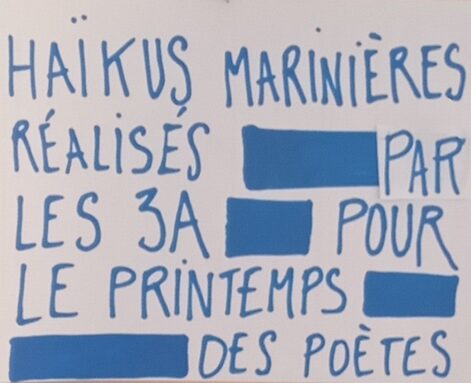 HAÏKUS MARINIÈRES
RÉALISÉS PAR
LES 3A POUR
LE PRINTEMPS
DES POÈTES